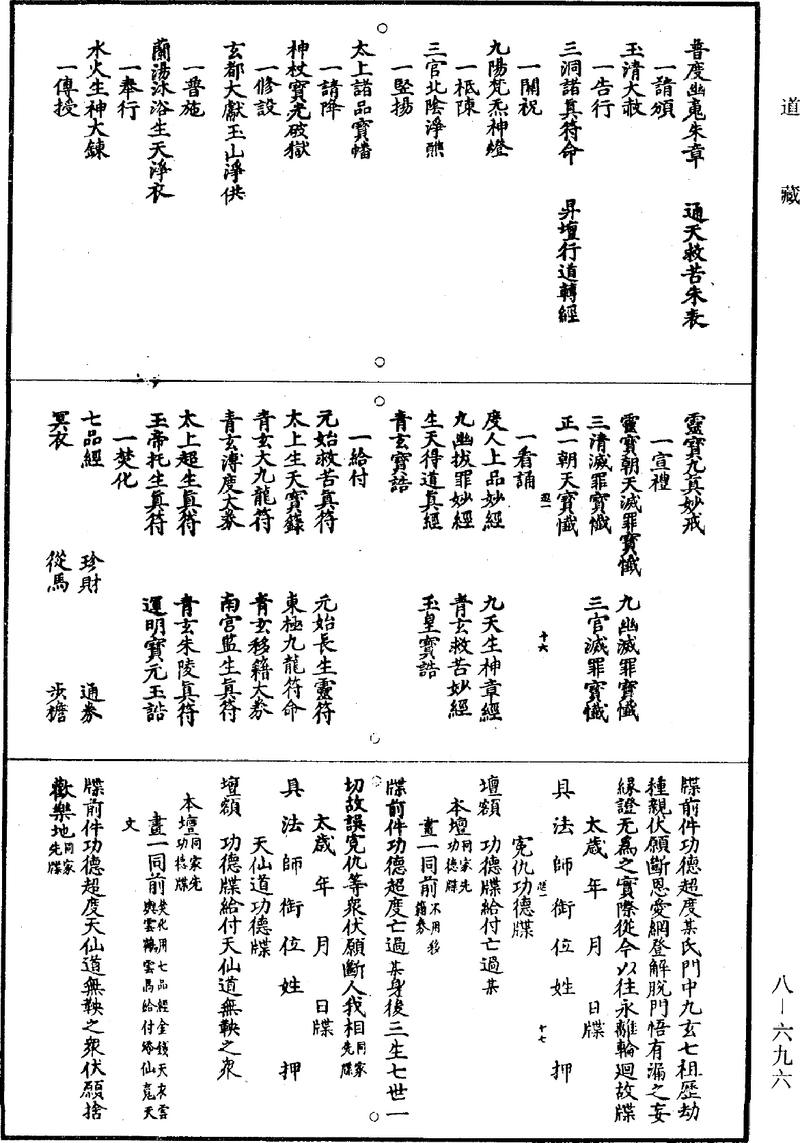 道藏
普度幽魂朱章　通天救苦朱表
一請頒
玉清大赦
一告行
三洞諸真符命　昇壇行道轉經
一關祝
九陽梵炁神燈
一柢陳
三官北陰淨醮
一竪揚
太上諸品寶旛
一請降
神杖寶光破獄
一修設
玄都大獻玉山淨供
一普施
蘭湯沐浴生天淨衣
一奉行
水火生神大鍊
一傳授
靈寶九真妙戒
一宣禮
靈寶朝天滅罪寶懺　九幽滅罪寶懺
三清滅罪寶懺　三官滅罪寶懺
正一朝天寶懺
一看誦　十六
度人上品妙經　九天生神章經
九幽拔罪妙經　青玄救苦妙經
生天得道真經　玉皇寶誥
青玄寶誥
一給付
元始救苦真符　元始長生靈符
太上生天寶籙　東極九龍符命
青玄大九龍符　青玄移籍大券
青玄溥度大券　南宮監生真符
太上超生真符　青玄朱陵真符
玉帝托生真符　運明寶元玉誥
一焚化
七品經　珍財　通券
冥衣　從馬　步擔
牒前件功德超度某氏門中九玄七祖歷劫
種親伏願斷恩愛網登解脫門悟有漏之妄
緣證无為之實際從今以往永離輪迴故牒
太歲　年　月　日牒
具法師銜位姓　押
冤仇功德牒　十七
壇額　功德牒給付亡過某
本壇同家先功德牒
畫一同前不用移籍券
牒前件功德超度亡過某身後三生七世一
切故誤冤仇等衆伏願斷人我相同家先牒
太歲　年　月　日牒
具法師銜位姓　押
天仙道功德牒
壇額　功德牒給付天仙道無鞅之衆
本壇同家先功德牒
畫一同前焚化用七品經金錢天衣雲輿雲鶴雲馬給付
文
牒前件功德超度天仙道無鞅之衆伏願捨
歡樂地同家先牒
八－六九六